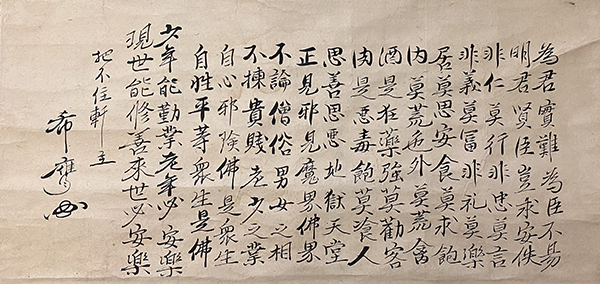 為君實難為臣不易
明君賢臣豈求安佚
非仁莫行非忠莫言
非義莫冨非礼莫樂
居莫思安食莫求飽
内莫荒色外莫荒禽
酒是狂藥強莫勸客
肉是惡毒飽莫飡人
思善思悪地獄天堂
正見邪見魔界佛界
不論僧俗男女之相
不揀貴賤老少之業
自心邪険佛是衆生
自性平等衆生是佛
少年能勤学老年必安樂
現世能修善来世必安樂
把不住軒主
希膺